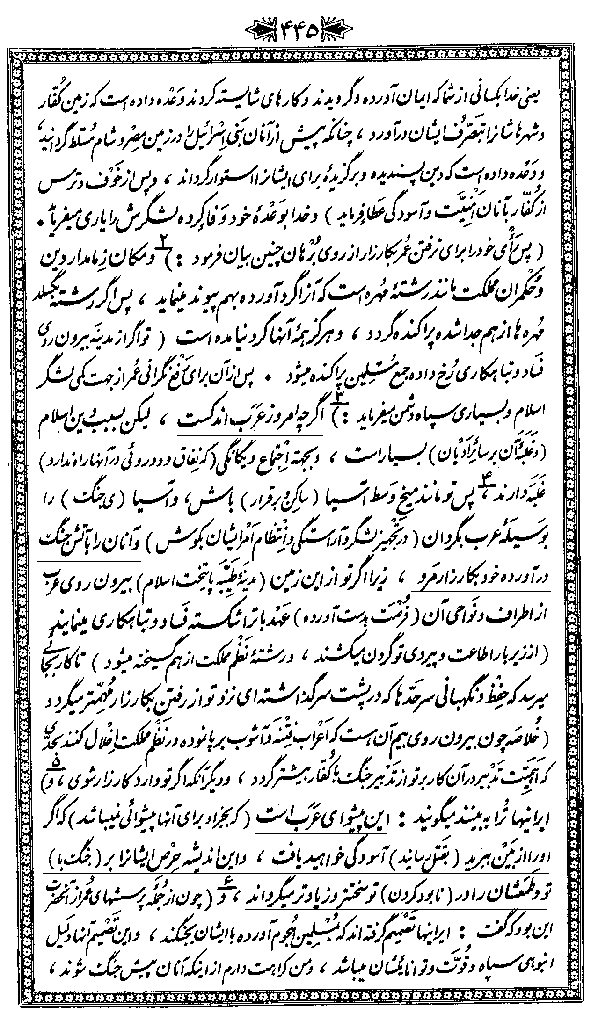 ۴۴۵
یعنی خدا بکسانی از شما که ایمان آورده و گرویدند و کارهای شایسته کردند وعده داده است که زمین کفار
و شهرهاشانرا بتصرف ایشان درآورد ، چنانکه پیش از آنان بنی اسرائیل را در زمین مصر و شام مسلط گردانید
و وعده داده است که دین پسندیده و برگزیده برای ایشانرا استوار گرداند ، و پس از خوف و ترس
از کفار بآنان امنیت و آسودگی عطا فرماید ) و خدا بوعده خود وفا کرده لشگرش را یاری میفرماید .
( پس رأی خود را برای نرفتن عمر بکارزار از روی برهان چنین بیان فرمود : ) ۲ و مکان زمامدار دین
و حکمران مملکت مانند رشته مهره است که آنرا گرد آورده بهم پیوند مینماید ، پس اگر رشته بگسلد
مهره ها از هم جدا شده پراکنده گردد ، و هرگز همه آنها گرد نیامده است ( تو اگر از مدینه بیرون روی
فساد و تباهکاری رخ داده جمع مسلمین پراکنده میشود . پس از آن برای رفع نگرانی عمر از جهت کمی لشگر
اسلام و بسیاری سپاه دشمن میفرماید : ) ۳ اگر چه امروز عرب اندکست ، لیکن بسبب دین اسلام
( و غلبه آن بر سائر ادیان ) بسیار است ، و بجهة اجتماع و یگانگی ( که نفاق و دوروئی در آنها راه ندارد )
غلبه دارند ، ۴ پس تو مانند میخ وسط آسیا ( ساکن و برقرار ) باش ، و آسیا ( ی جنگ ) را
بوسیله عرب بگردان ( در تجهیز لشگر و آراستگی و انتظام امر ایشان بکوش ) و آنان را بآتش جنگ
درآورده خود بکارزار مرو ، زیرا اگر تو از این زمین ( مدینه طیبه پایتخت اسلام ) بیرون روی عرب
از اطراف و نواحی آن ( فرصت بدست آورده ) عهد با ترا شکسته فساد و تباهکاری مینمایند
( از زیر بار اطاعت و پیروی تو گردن میکشند ، و رشته نظم مملکت از هم گسیخته میشود ) تا کار بجائی
میرسد که حفظ و نگهبانی سرحدها که در پشت سر گذاشته ای نزد تو از رفتن بکارزار مهمتر میگردد
( خلاصه چون بیرون روی بیم آن است که اعراب فتنه و آشوب بر پا نموده در نظم مملکت اخلال کنند بحدی
که اهمیت تدبیر در آن کار بر تو از تدبیر جنگ با کفار بیشتر گردد ، و دیگر آنکه اگر تو وارد کارزار شوی ، ) ۵ و
ایرانیها ترا به بینند میگویند : این پیشوای عرب است ( که بجز او برای آنها پیشوائی نمیباشد ) که اگر
او را از بین ببرید ( بقتل رسانید ) آسودگی خواهید یافت ، و این اندیشه حرص ایشانرا بر ( جنگ با )
تو و طمعشان را در ( نابود کردن ) تو سختتر و زیادتر میگرداند ، ۶ و ( چون از جمله پرسشهای عمر از آنحضرت
این بود که گفت : ایرانیها تصمیم گرفته اند که بمسلمین هجوم آورده با ایشان بجنگند ، و این تصمیم آنها دلیل
انبوهی سپاه و قوت و توانائیشان میباشد ، و من کراهت دارم از اینکه آنان پیش جنگ شوند ،